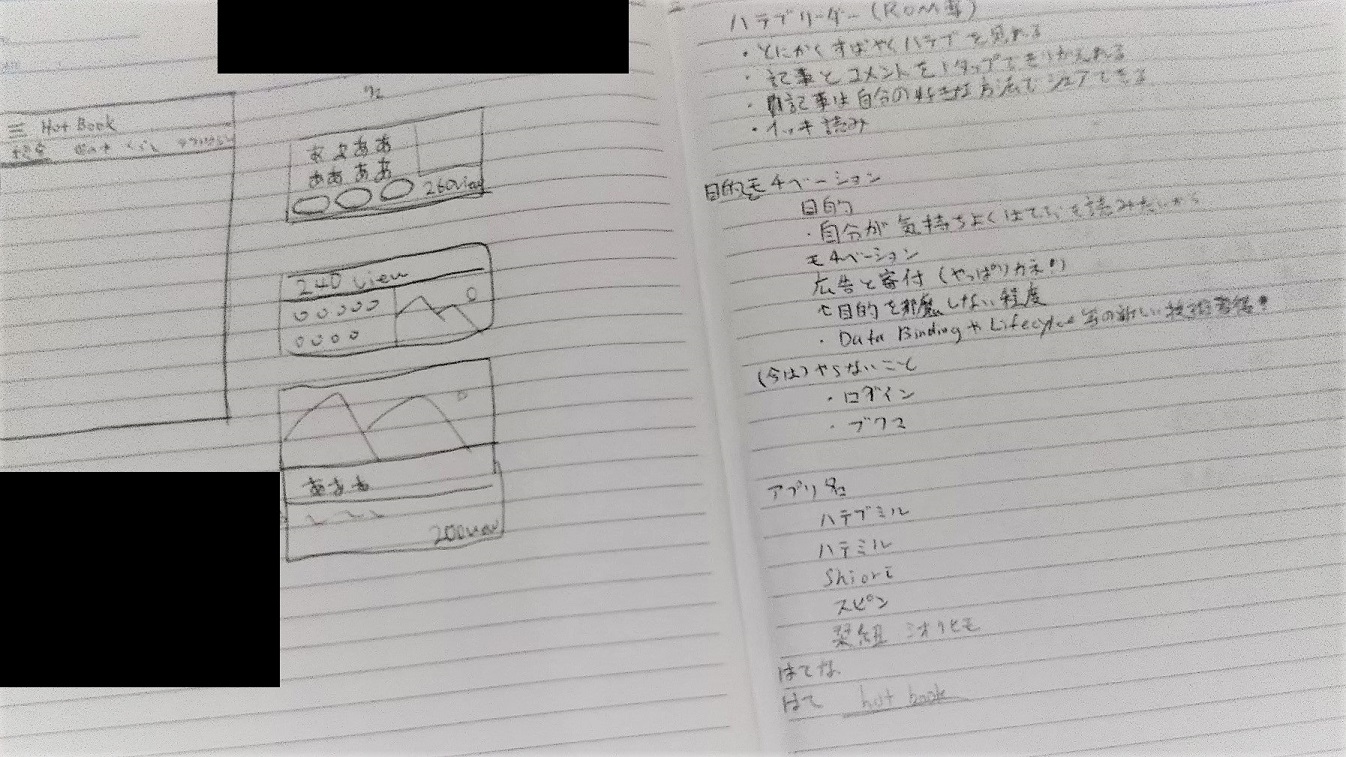 Hot Book
ああああ
ああああ
260view
240 view
○○○○○
○○○○
あああ
200view
ハテブリーダー(ROM専)
・とにかくすばやくハテブを見れる
・記事とコメントを1タップできりかえれる
・記事は自分の好きな方法でシェアできる
・イッキ読み
目的モチベーション
目的
・自分が気持ちよくはてぶを読みたいから
モチベーション
広告と寄付(やっぱりカネ!)
目的を邪魔しない程度
・Data BindingやLifecycle等の新しい技術
(今は)やらないこと
・ログイン
・ブクマ
アプリ名
ハテブミル
ハテミル
Shiori
スピン
栞紐 シオリヒモ
はてな
はて hot book